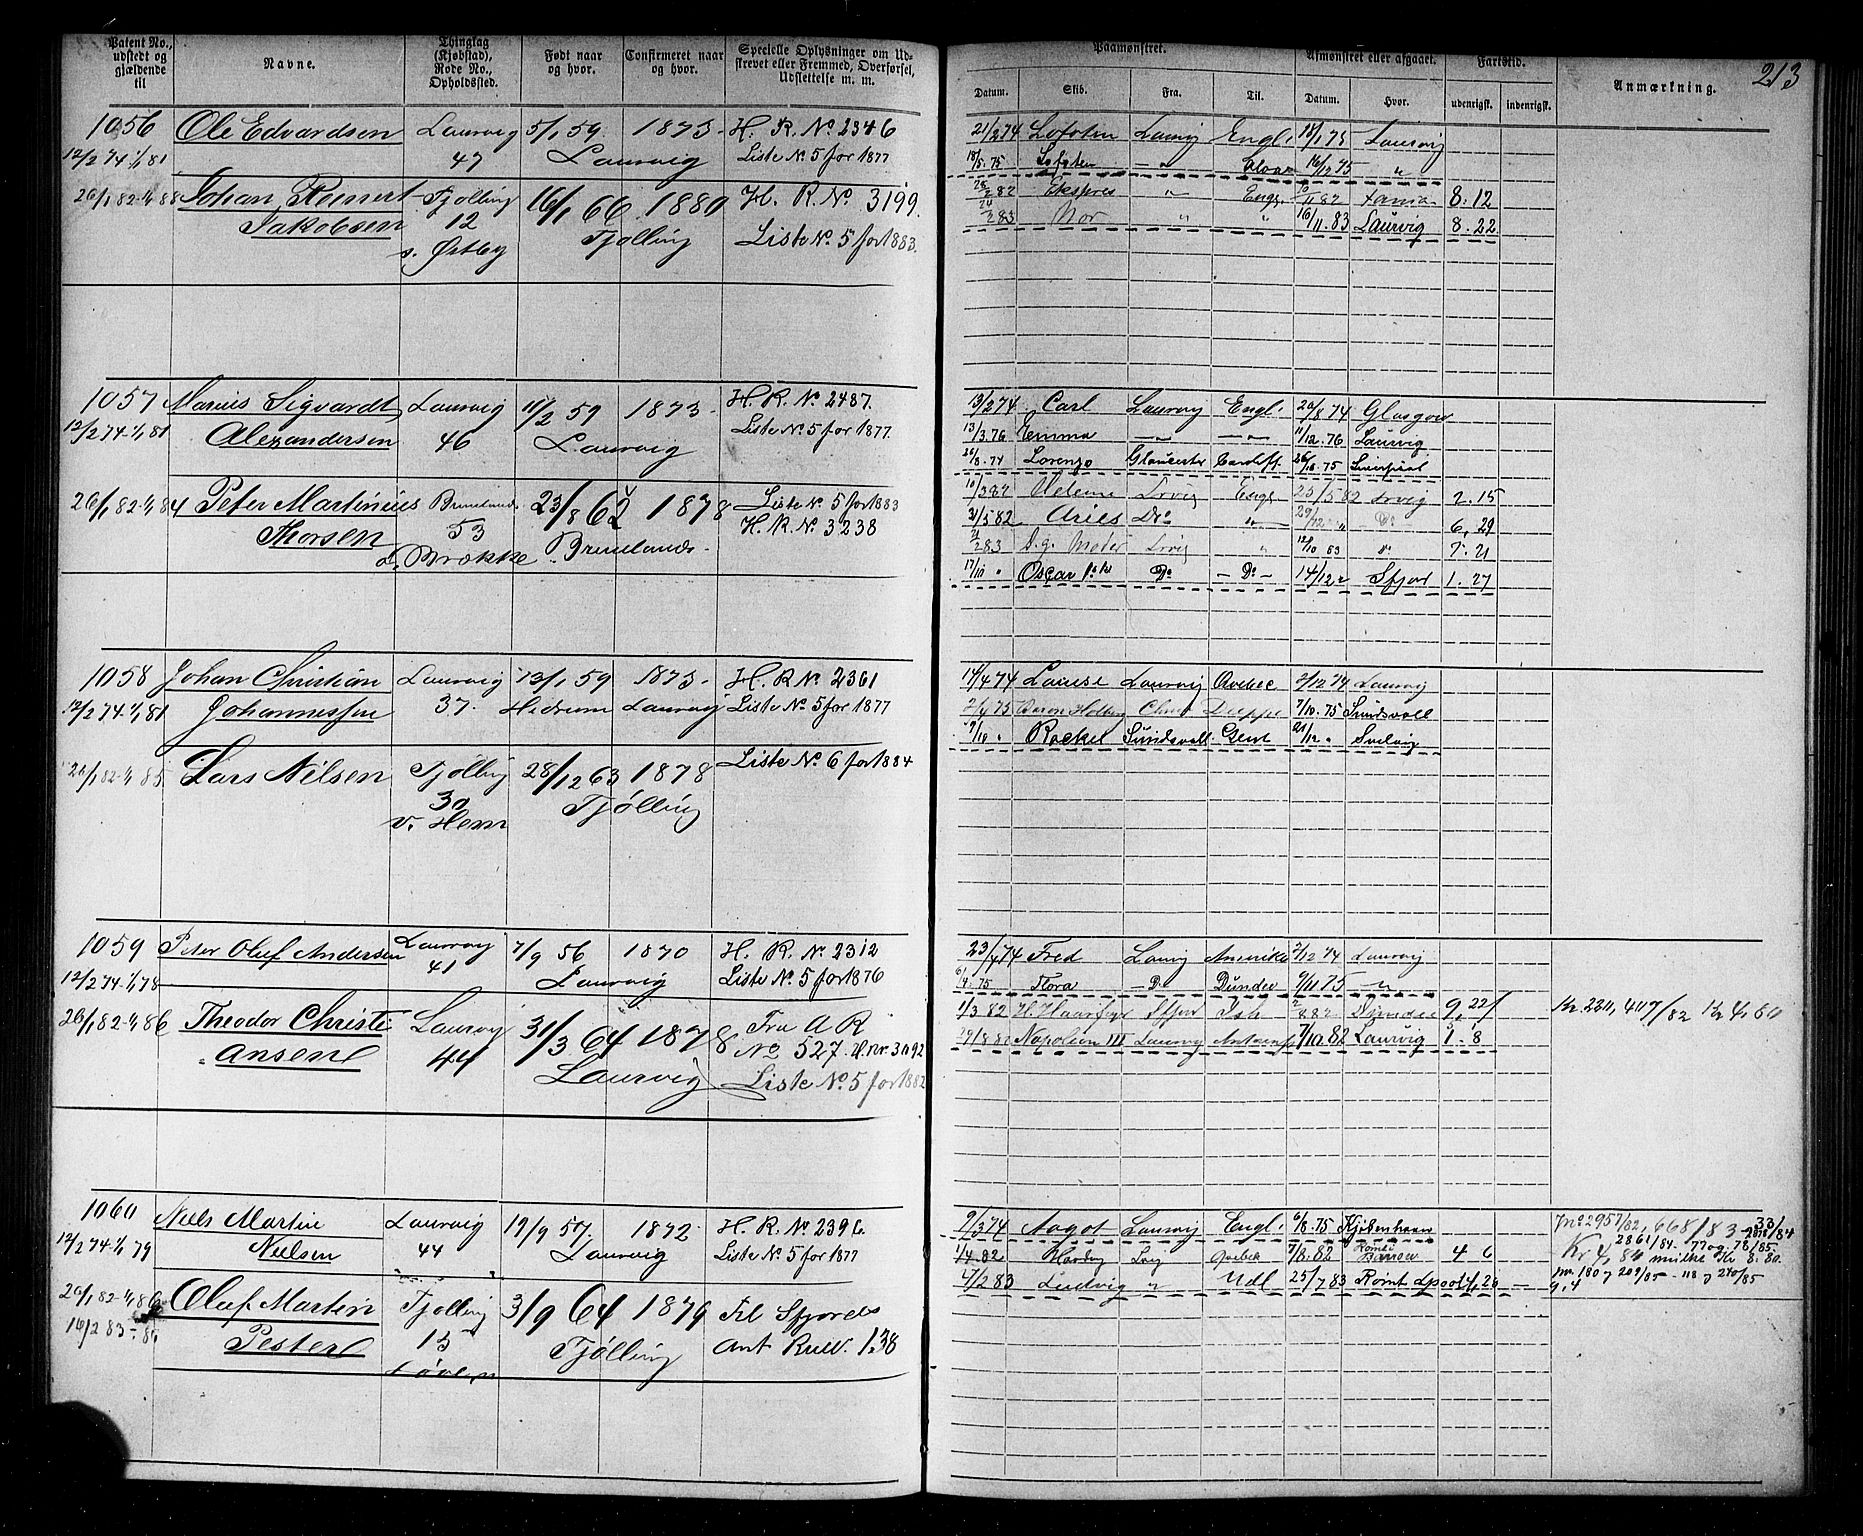 213
Patent No., udstedt og gjældende til
Navne.
Thinglag (Kjøbstad), Rode No., Opholdssted.
Født naar og hvor.
Confirmeret naar og hvor.
Specielle Oplysninger om Udstrevet eller Fremmed, Overførsel, Udslettelse m. m.
Paamønstret.
Afmønstret eller afgaaet.
Fartstid.
Anmærkning.
Datum. Skib. Fra. Til. Datum. Hvor. udenrigsk. indenrigsk.
1056 Ole Edvardsen Laurvig 5/1 59. 1873. H. R. No 2346
12/2 74-1/1 81 47 Laurvig Liste No. 5 for 1877
26/1 82-1/1 88 Johan Reinert Tjølling 16/1 66 1880 H. R. No 3199.
Jakobsen 12 Tjølling Liste No. 5 for 1883.
s. Østby
21/2 74 Lofoten Laurvig Engl. 18/1 75 Laurvig
18/5. 75 Lofoten 16/12 75 "
82 Ekspres " Engl. 82 8. 12
83 Nor " " 16/11. 83 Laurvig 8. 22
1057 Marius Sigvardt Laurvig 11/2 59 1873. H. R. No 2487.
12/2 74-1/1 81 Alexandersen 46 Laurvig Liste No. 5 for 1877.
26/1 82-1/1 84 Peter Martinius Brunlands 23/8 62 1878 Liste No. 5 for 1883
Thorsen 53 H. R. No. 3238
Brække Brunlands.
13/2 74 Carl Laurvig Engl. 20/8 74 Glasgow
13/3. 76 Emma 11/12. 76 Laurvig
26/8. 74 Lorenzo Gloucester Cardiff 26/10. 75 Liverpool
10/3 82 Helene Lrvig Engl 25/5 82 Lrvig 2. 15
31/5 82 Aries Do " 29/12 " Do 6. 29
83 Lrvig " 12/10 83 " 7. 21
17/10 " Oscar Do Do 14/12 Sfjor 1. 27
1058 Johan Christian Laurvig 13/1 59 1873. H. R. No 2361
12/2 74-1/1 81 Johannessen 37. Hedrum Laurvig Liste No. 5 for 1877
26/1 82-1/1 85 Lars Nilsen Tjølling 28/12 63 1878 Liste No. 6 for 1884
30 Tjølling
v. Hem
14/4 74 Louise Laurvig Qvebec 2/12 74 Laurvig
2/4 75 Baron Holberg Dieppe 7/10. 75 Sundsvall
9/10 " Rackel Sundsvall Gent 21/12 " Svelvig
1059 Peter Oluf Andersen Laurvig 7/9 56 1870 H. R. No. 2312
12/2 74-1/1 78 41 Laurvig Liste No. 5 for 1876
26/1 82-1/1 86 Theodor Christi Laurvig 31/3 64 1878 Fra A R
ansen 44 Laurvig No 527. H. nr. 3092
Liste No. 5 for 1882
23/4 74 Fred Laurvig Amerika 2/12 74 Laurvig
75 Flora Do Dundee 9/11 75 "
1/3 82 H. Haarfagr Sfjord 82 Dundee 9. 22
29/8 82 Napoleon III Laurvig 7/10 82 Laurvig 1. 8
Kr. 2311, 407/82 Kr 4,60
1060 Niels Martin Laurvig 19/9 57. 1872. H. R. No. 2396.
12/2 74-1/1 79 Nielsen 44 Laurvig Liste No. 5 for 1877
26/1 82-1/1 86 Oluf Martin Tjølling 3/9 64 1879 Til Sfjords
16/2 83- Pester 15 Tjølling ant Rull. 138
9/3 74 Aagot Laurvig Engl. 6/8. 75 Kjøbenhavn
1/4 82 Hardog Qvebek 7/8. 82 Barrow 4 6
4/2 83 Ludvig " Udl 25/7 83 Rømt Lpool 4, 20
Jno 2957/82, 668/83
2861/84. 77 og 78/85.
Kr 4, 84 Kr 8. 80.
180 og 209/85 - 118 og 240/85